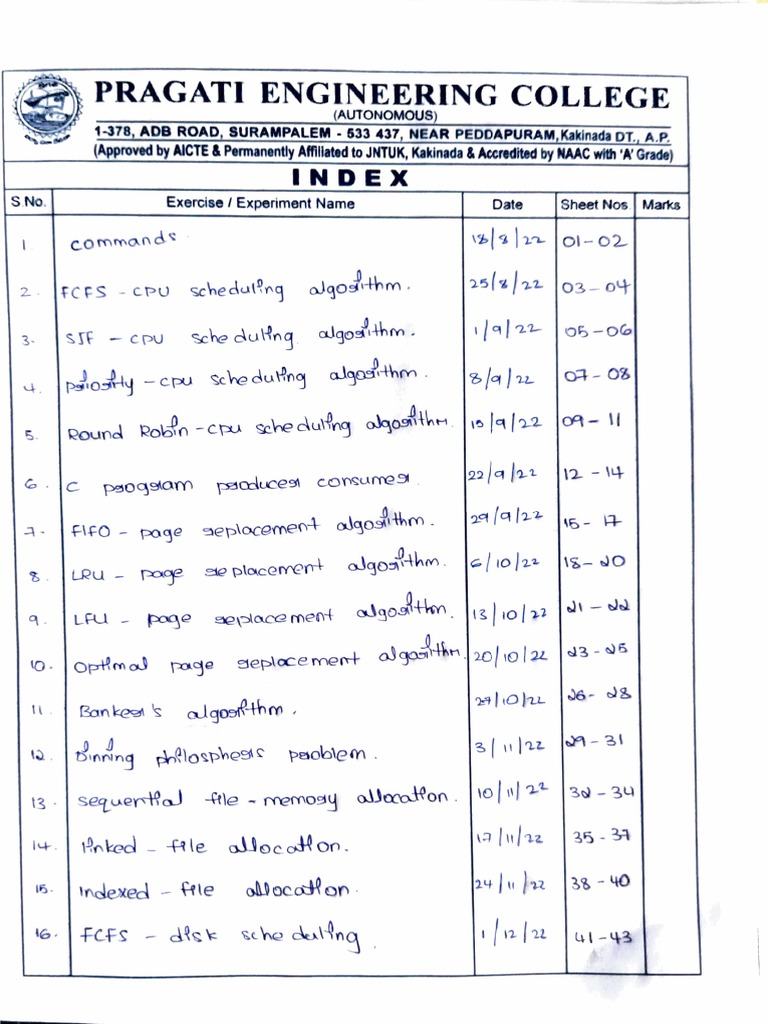 PRAGATI ENGINEERING COLLEGE
(AUTONOMOUS)
1-378, ADB ROAD, SURAMPALEM - 533 437, NEAR PEDDAPURAM, Kakinada DT., A.P.
(Approved by AICTE & Permanently Affiliated to JNTUK, Kakinada & Accredited by NAAC with 'A' Grade)
INDEX
S No. Exercise / Experiment Name Date Sheet Nos Marks
1. commands. 18/8/22 01-02
2. FCFS - CPU scheduling algorithm. 25/8/22 03-04
3. SJF - CPU scheduling algorithm. 1/9/22 05-06
4. priority - cpu scheduling algorithm. 8/9/22 07-08
5. Round Robin - cpu scheduling algorithm. 15/9/22 09-11
6. C program producer consumer 22/9/22 12-14
7. FIFO - page replacement algorithm. 29/9/22 15-17
8. LRU - page replacement algorithm. 6/10/22 18-20
9. LFU - page replacement algorithm. 13/10/22 21-22
10. Optimal page replacement algorithm. 20/10/22 23-25
11. Banker's algorithm. 27/10/22 26-28
12. Dinning philosphers problem. 3/11/22 29-31
13. sequential file - memory allocation. 10/11/22 32-34
14. linked - file allocation. 17/11/22 35-37
15. indexed - file allocation. 24/11/22 38-40
16. FCFS - disk scheduling. 1/12/22 41-43